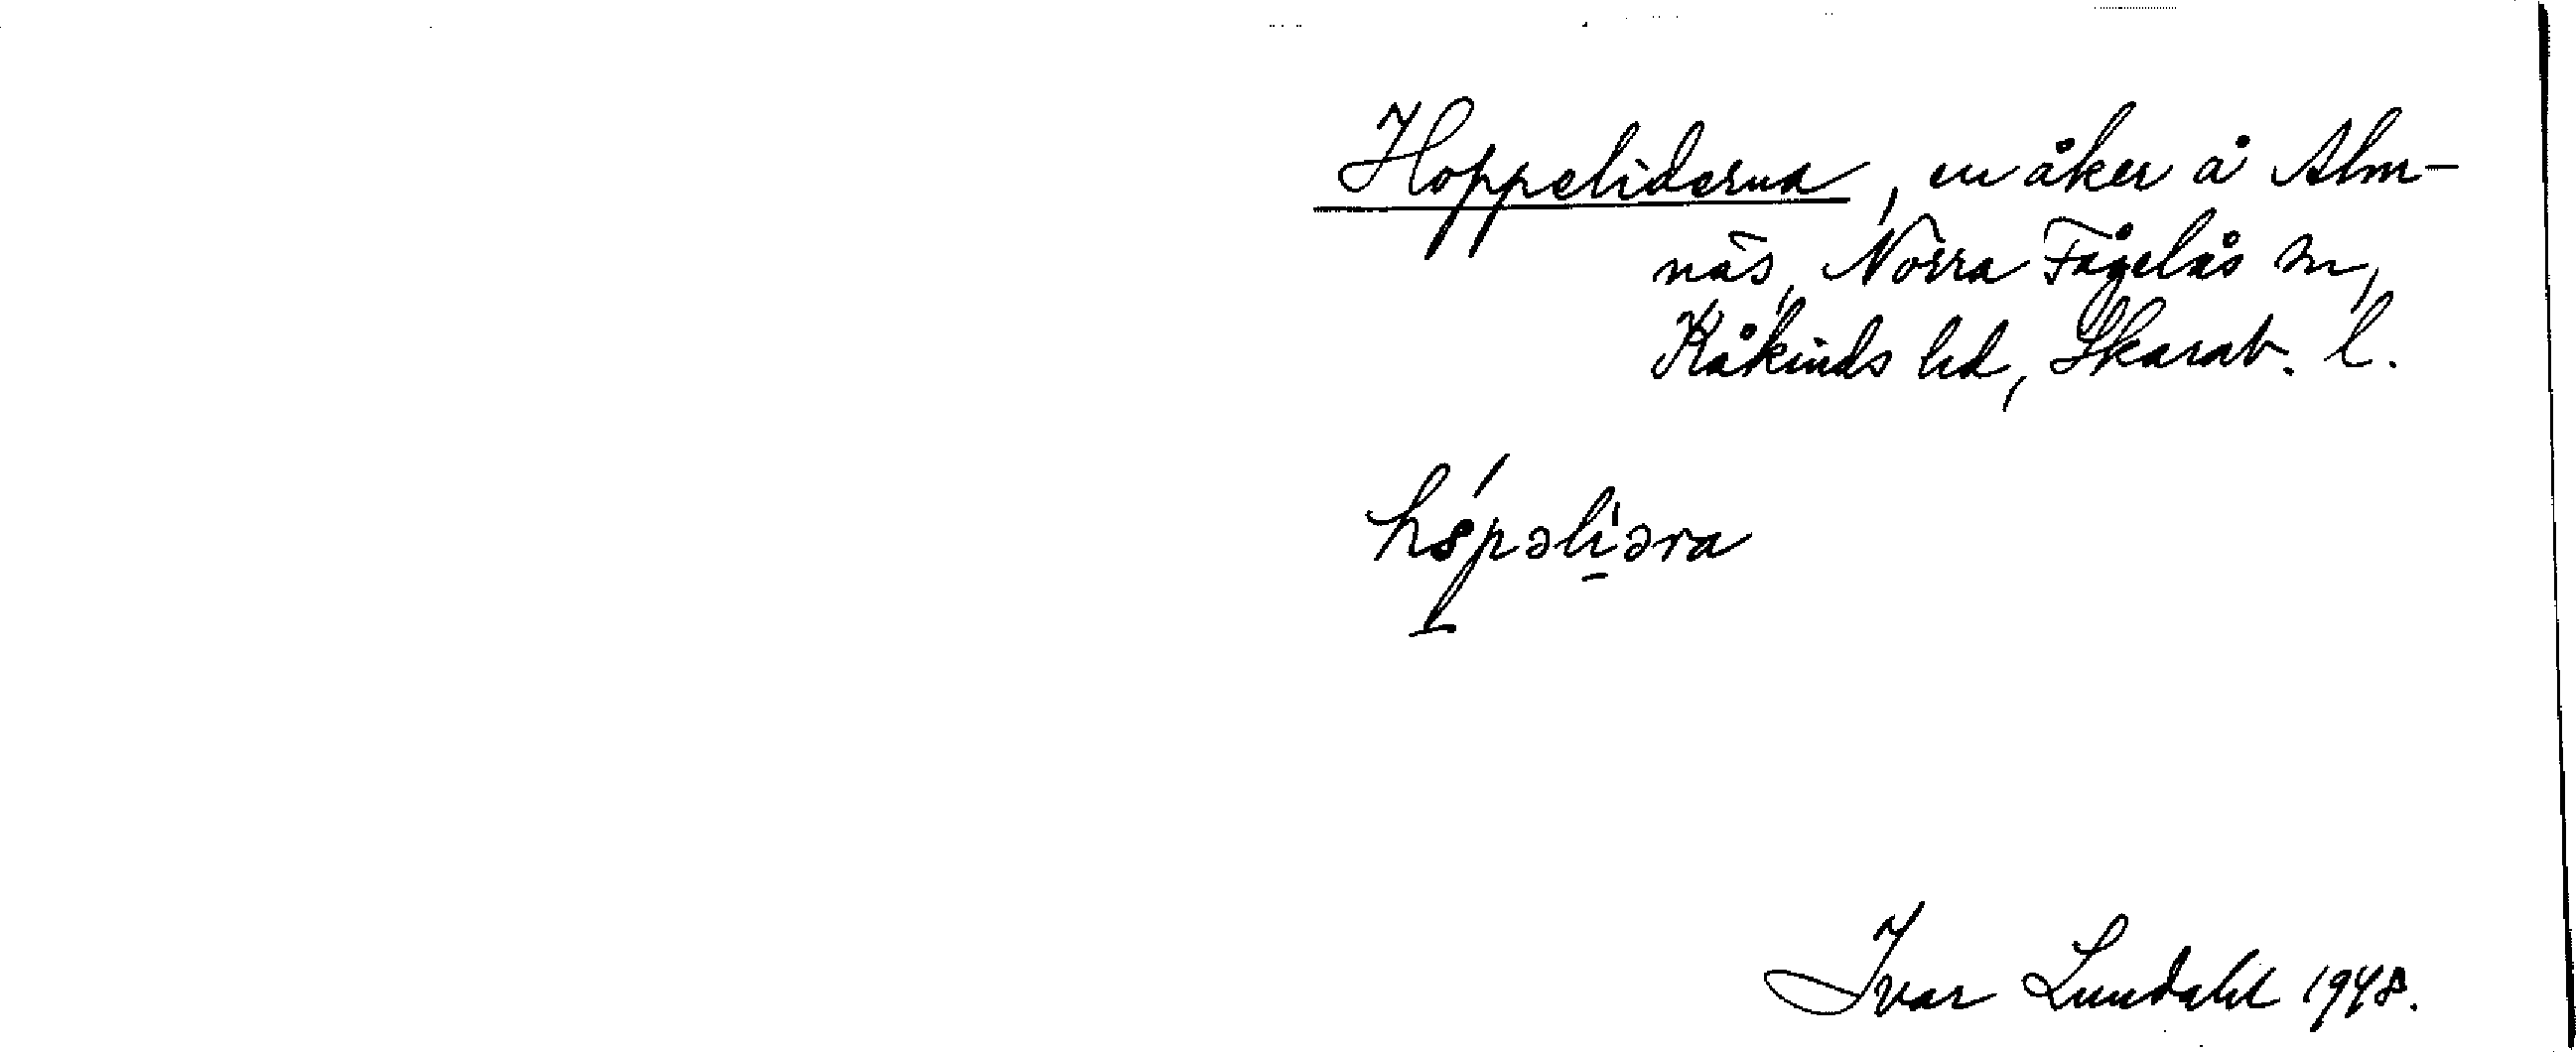 Hoppeliderna, en åker å Alm-
näs, Norra Fågelås sn,
Kåkinds hd, Skarab. l.
hópəli̠əra
Ivar Lundahl 1948.